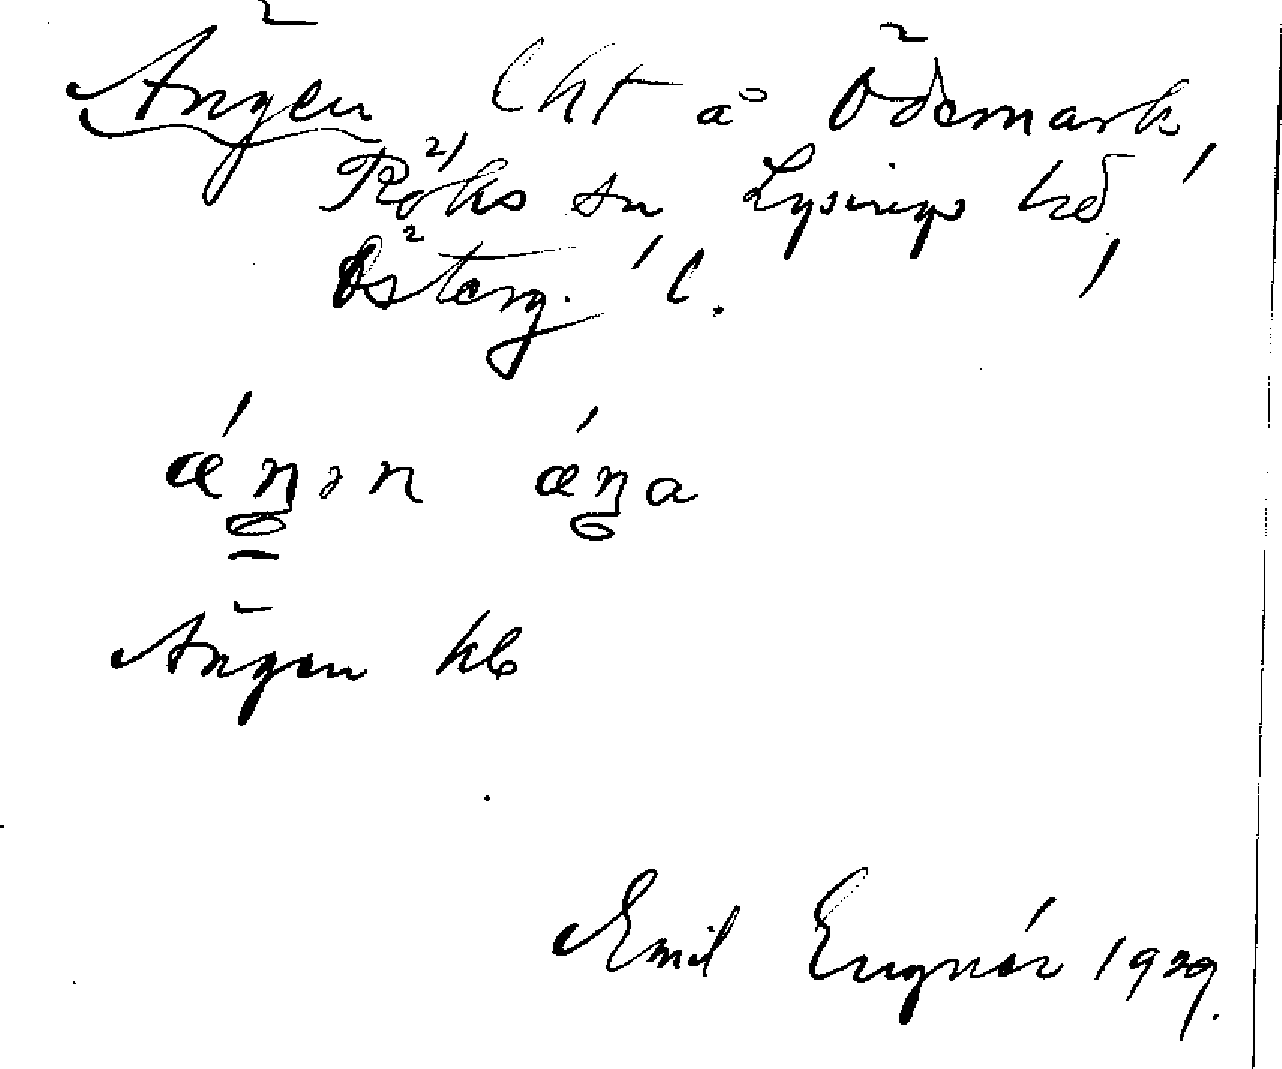 Ängen lht å Ödemark,
Röks sn Lysings hd,
Österg. l.
Ängen kb
Emil Engnér 1929.